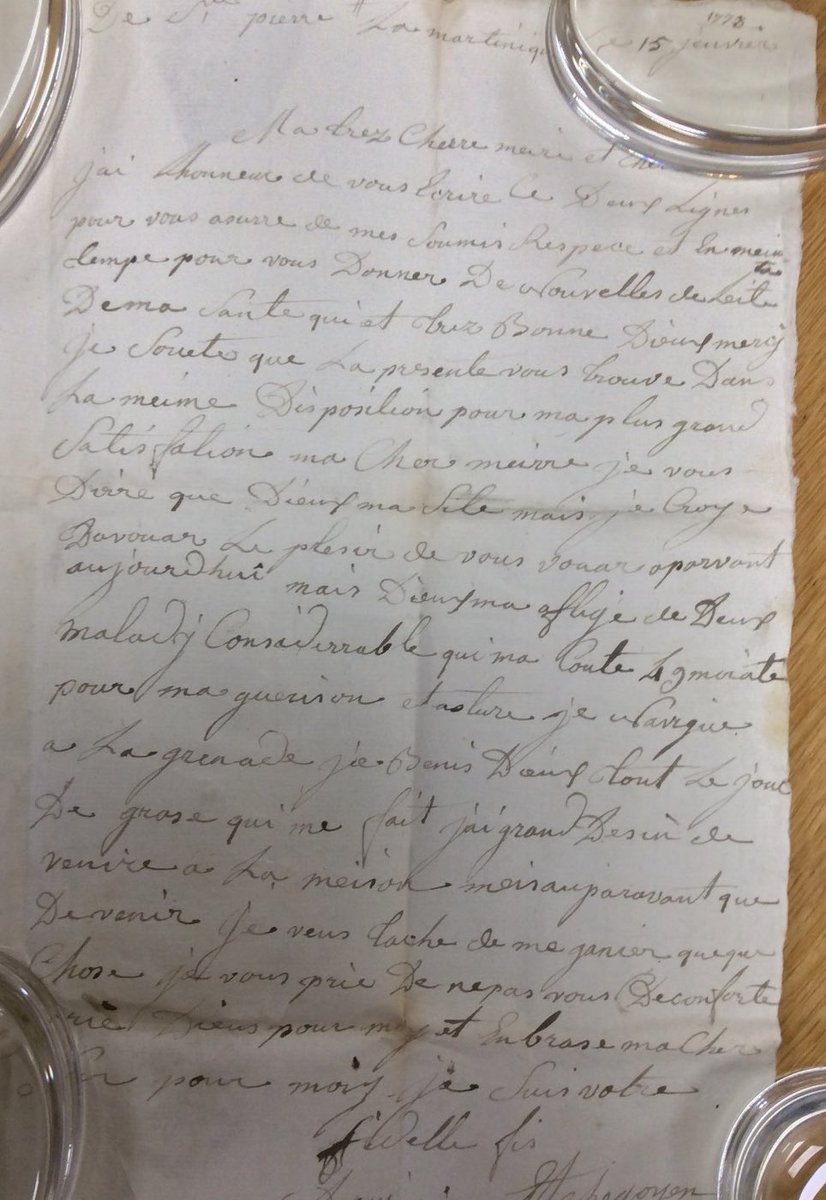 De Ste pierre La martinique Le 15 jenvrier 1773
Ma trez Cheere meire et cher
j'ai Lhonneur de vous Ecrire Ce Deux Lignes
pour vous asurre de mes Soumis Respece et En mein
tempe pour vous Donner De Nouvelles de Leita
De ma Sante qui et trez Bonne Dieux mercy
je Souete que La presente vous trouve Dans
La meime Disposition pour ma plus grand
Satisfation ma Cher meirre je vous
Dirre que Dieux ma mais je Croye
Davouar Le plesir de vous vouar oparvant
aujourdhuî mais Dieux ma aflige de Deux
maladÿ Considerrable qui ma Coute 4 9
pour ma guerison et asture je Navigue
a La grenade je Benis Dieux tout Le jour
De grase qui me fait j'ai grand Desir de
venire a La meison meis auparavant que
De venir Je veus tache de me ganier queque
Chose je vous prie De ne pas vous Deconforte
Dieus pour moy et Enbrase ma Cher
pour moiy je Suis votre
fidelle fis